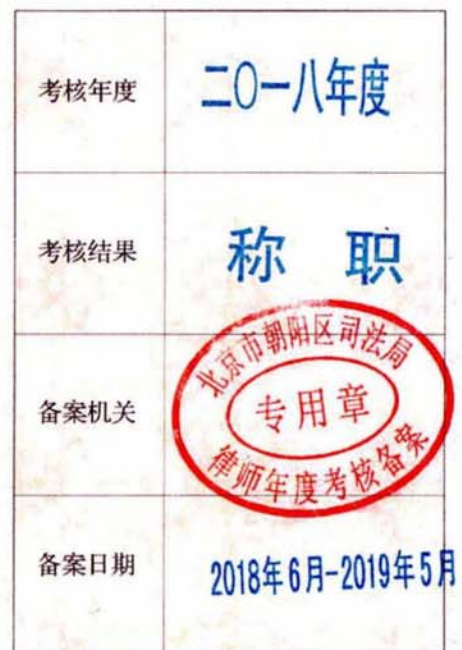 考核年度
二〇一八年度
考核结果
称 职
备案机关
北京市朝阳区司法局
专用章
律师年度考核备案
备案日期
2018年6月-2019年5月